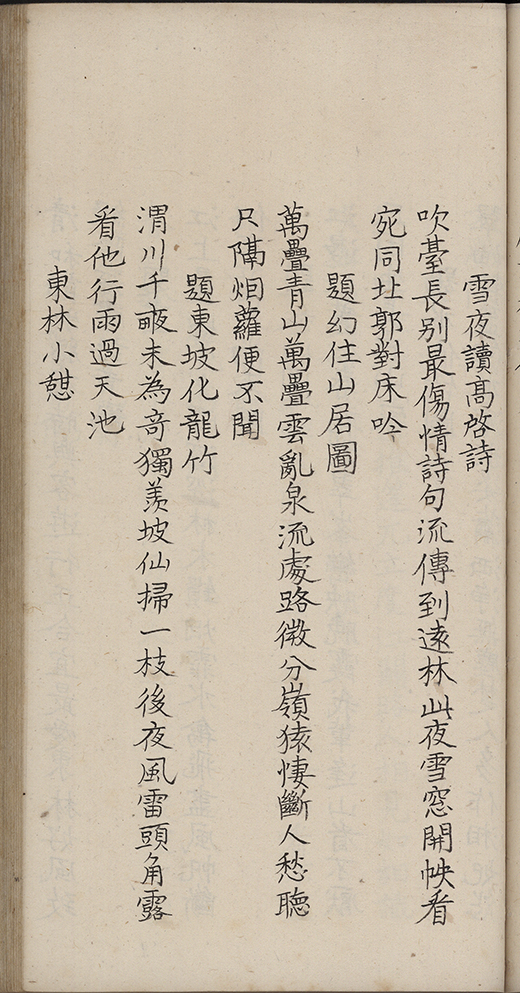 雪夜讀高啓詩
吹臺長别最傷情詩句流傳到遠林此夜雪窓開帙看
宛同北郭對床吟
題幻住山居圖
萬疊青山萬疊雲亂泉流處路微分嶺猿悽斷人愁聽
尺隔烟蘿便不聞
題東坡化龍竹
渭川千畝未為奇獨羨坡仙掃一枝後夜風雷頭角露
看他行雨過天池
東林小憇